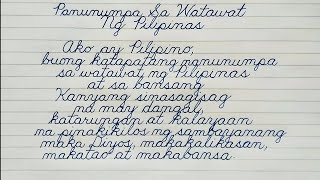 Panunumpa Sa Watawat
Ng Pilipinas
Ako ay Pilipino,
buong katapatang nanunumpa
sa watawat ng Pilipinas
at sa bansang
Kanyang sinasagisag
na may dangal,
katarungan at kalayaan
na pinakikilos ng sambayanang
maka Diyos, makakalikasan,
makatao at makabansa.